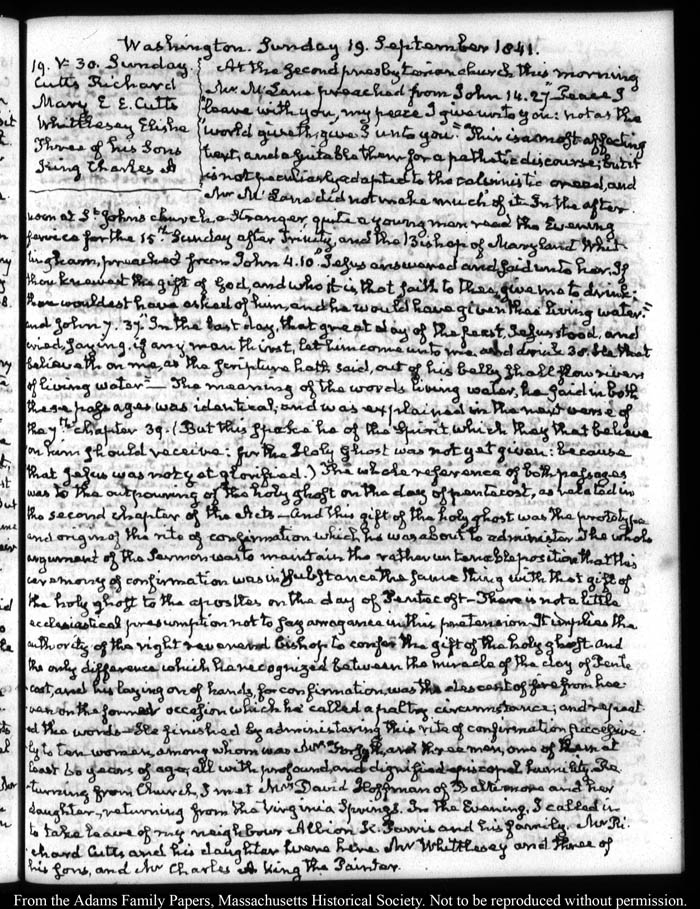 Washington. Sunday 19. September 1841.
19. V. 30. Sunday.
Cutts Richard
Mary E. E. Cutts
Whittlesey Elisha
Three of his Sons
King Charles A
At the second presbyterian church this morning
Mr. McLane preached from John 14.27. "Peace I
leave with you, my peace I give unto you: not as the
world giveth, give I unto you." This is a most affecting
text, and a suitable theme for a pathetic discourse; but it
is not peculiarly adapted to the calvinistic creed, and
Mr McLane did not make much of it. In the after
noon at St. Johns church, a stranger, quite a young man read the Evening
service for the 15th Sunday after Trinity, and the Bishop of Maryland Whit-
tingham, preached from John 4.10. "Jesus answered and said unto her, If
thou knewest the gift of God, and who it is that saith to thee, give me to drink;
thou wouldest have asked of him, and he would have given thee living water."
and John 7.37. "In the last day, that great day of the feast, Jesus stood, and
cried, saying, if any man thirst, let him come unto me, and drink 38. He that
believeth on me, as the scripture hath said, out of his belly shall flow rivers
of living water"— The meaning of the words living water, he said in both
these passages was identical, and was explained in the next verse of
the 7th chapter 39. (But this spake he of the Spirit which they that believe
on him should receive: for the Holy Ghost was not yet given: because
that Jesus was not yet glorified.) The whole reference of both passages
was to the outpouring of the holy ghost on the day of pentecost, as related in
the second chapter of the Acts— And this gift of the holy ghost was the prototype
and origin of the rite of confirmation which he was about to administer. The whole
argument of the Sermon was to maintain the rather untenable position that this
ceremony of confirmation was in substance the same thing with that gift of
the holy ghost to the apostles on the day of Pentecost— There is not a little
ecclesiastical presumption not to say arrogance in this pretension. It implies the
authority of the right reverend bishop to confer the gift of the holy ghost. And
the only difference which he recognized between the miracle of the day of Pente
cost, and his laying on of hands, for confirmation, was the descent of fire from hea-
ven on the former occasion which he called a paltry circumstance; and repeat
ed the words— He finished by administering this rite of confirmation successive
ly to ten women, among whom was Mrs and three men, one of them at
least 60 years of age; all with profound, and dignified episcopal humility. Re-
turning from Church, I met Mrs David Hoffman of Baltimore and her
daughter, returning from the Virginia Springs. In the Evening, I called in
to take leave of my neighbour Albion K. Parris and his family. Mr Ri-
chard Cutts and his daughter were here. Mr Whittlesey and three of
his sons, and Mr Charles A King the Painter.
From the Adams Family Papers, Massachusetts Historical Society. Not to be reproduced without permission.